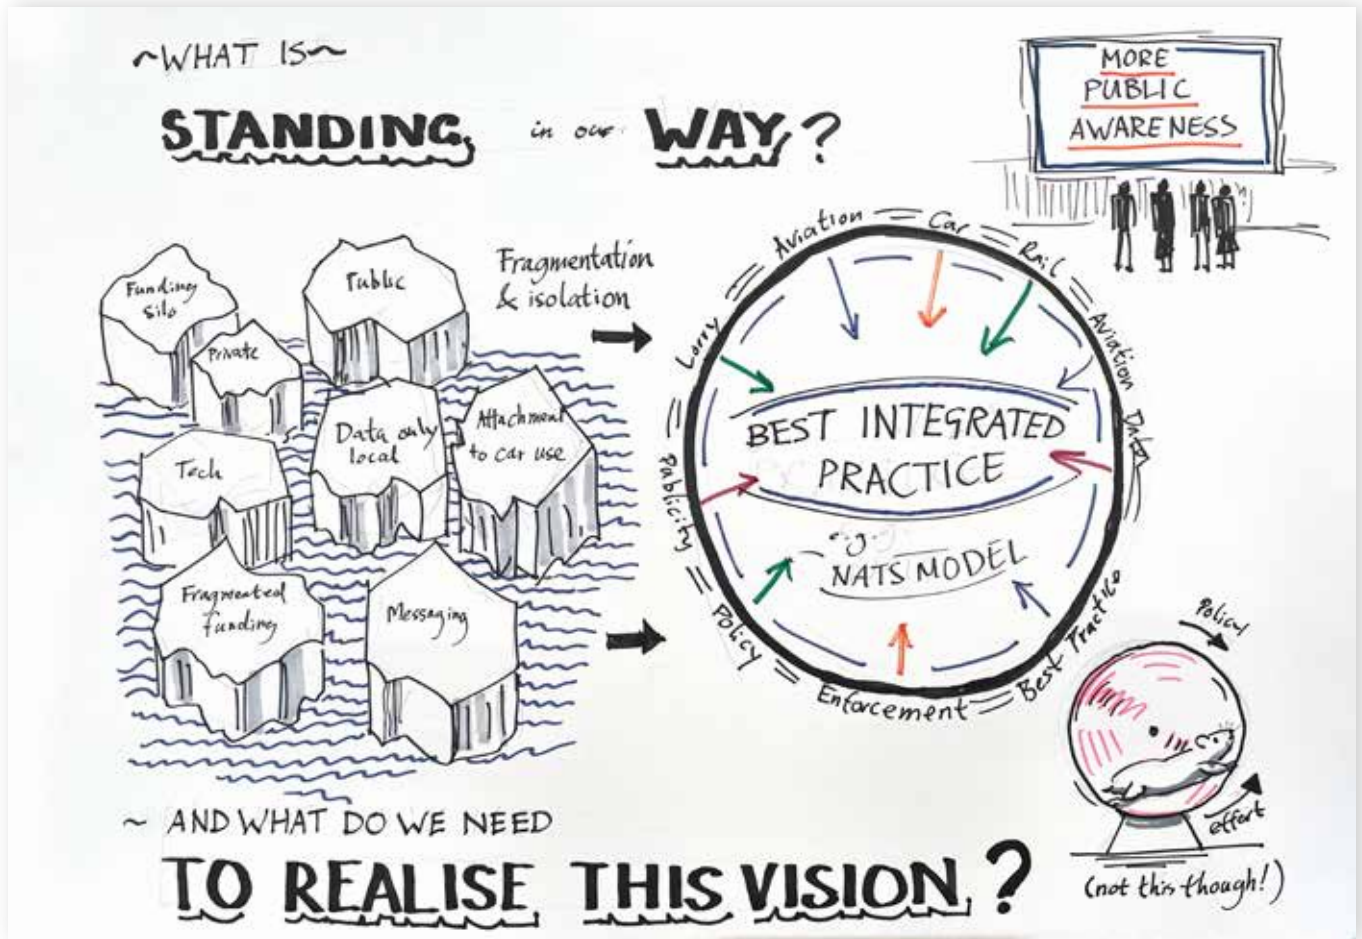 ~WHAT IS~
STANDING in our WAY?
MORE
PUBLIC
AWARENESS
Funding
Silo
Public
Private
Data only
local
Attachment
to car use
Tech
Fragmented
funding
Messaging
Fragmentation
& isolation
Aviation
Car
Rail
Aviation
Data
Best Practice
Enforcement
Policy
Publicity
Lorry
BEST INTEGRATED
PRACTICE
e.g.
NATS MODEL
Policy
effort
(not this though!)
~ AND WHAT DO WE NEED
TO REALISE THIS VISION?